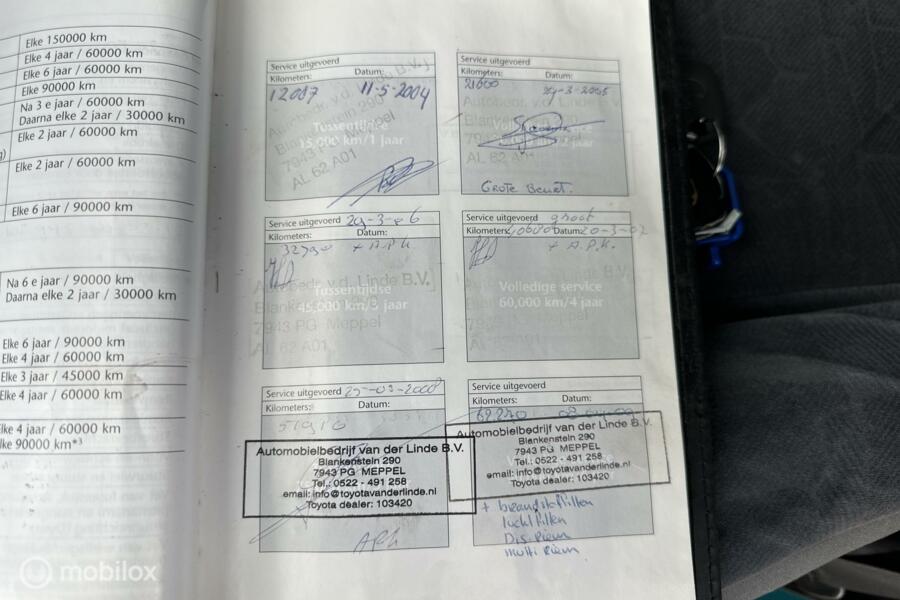 Elke 150000 km
Elke 4 jaar / 60000 km
Elke 6 jaar / 60000 km
Elke 90000 km
Na 3 e jaar / 60000 km
Daarna elke 2 jaar / 30000 km
Elke 2 jaar / 60000 km
Elke 2 jaar / 60000 km
Elke 6 jaar / 90000 km
Na 6 e jaar / 90000 km
Daarna elke 2 jaar / 30000 km
Elke 6 jaar / 90000 km
Elke 4 jaar / 60000 km
Elke 3 jaar / 45000 km
Elke 4 jaar / 60000 km
Elke 4 jaar / 60000 km
lke 90000 km*3
Service uitgevoerd
Kilometers: Datum:
12087 11-5-2004
Autobedr. v.d. Linde B.V.
Blankenstein 290
7943 PG Meppel
AL 62 A01
Tussentijdse
15,000 km/1 jaar
Service uitgevoerd
Kilometers: Datum:
21600
Autobedr. v.d. Linde
AL 62 A01
GROTE BEURT.
Service uitgevoerd 29-3-06
Kilometers: Datum:
+ A.P.K
v.d. Linde B.V.
Tussentijdse
45,000 km/3 jaar
7943 PG Meppel
AL 62 A01
Service uitgevoerd groot
Kilometers: Datum: 20-3-07
+ A.P.K.
Volledige service
60,000 km/4 jaar
Service uitgevoerd 25-03-2008
Kilometers: Datum:
Automobielbedrijf van der Linde B.V.
Blankenstein 290
7943 PG MEPPEL
Tel.: 0522 - 491 258
email: info@toyotavanderlinde.nl
Toyota dealer: 103420
APK
Service uitgevoerd
Kilometers: Datum:
62270
Automobielbedrijf van der Linde B.V.
Blankenstein 290
7943 PG MEPPEL
Tel.: 0522 - 491 258
email: info@toyotavanderlinde.nl
Toyota dealer: 103420
+ brandstoffilter
luchtfilter
Dis. Riem
multi Riem
mobilox